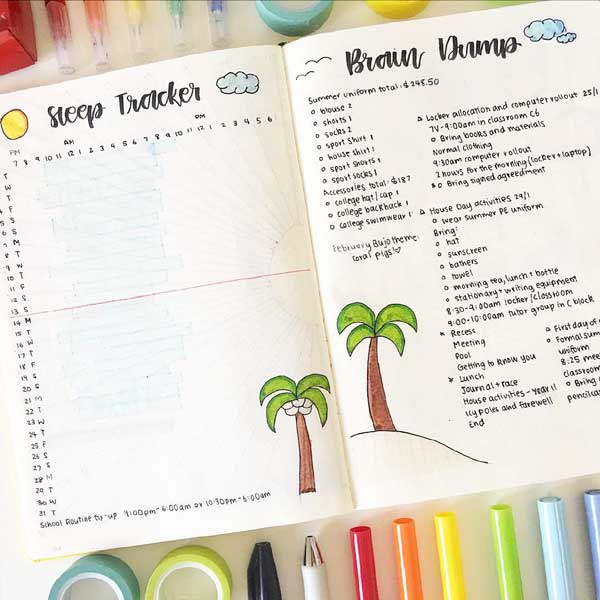 Sleep Tracker
AM
PM
PM
7 8 9 10 11 12 1 2 3 4 5 6 7 8 9 10 11 12 1 2 3 4 5 6
T
W
T
4 F
5 S
6 S
7 M
8 T
9 W
10 T
11 F
12 S
13 S
14 M
15 T
16 W
17 T
18 F
19 S
20 S
21 M
22 T
23 W
24 T
25 F
26 S
27 S
28 M
29 T
30 W
31 T
School Routine
9:00pm-5:00am or 10:30pm-6:00am
Brain Dump
Summer uniform total: $248.50
o blouse 2
o shorts 1
o socks 2
o sport shirt 1
o house shirt 1
o sport shorts 1
o sport socks 1
Accessories total: $187
o college hat/cap 1
o college backback 1
o college swimwear 1
February Bujo theme:
coral pigs!
Locker allocation and computer rollout 25/1
7V-9:00am in classroom C6
o Bring books and materials
Normal clothing
9:30am computer rollout
2 hours for the morning (locker + laptop)
o Bring signed agreedment
House Day activities 29/1
o wear summer PE uniform
Bring:
o hat
o sunscreen
o bathers
o towel
o morning tea, lunch + bottle
o stationary + writing equipment
8:30-9:00am locker/classroom
9:00-10:00am tutor group in C block
Recess
Meeting
Pool
Getting to know you
Lunch
Journal + race
House activities - Year 11
Icy poles and farewell
End
First day of
o Formal summ
uniform
8:25 mee
classroom
o Bring
pencilcas